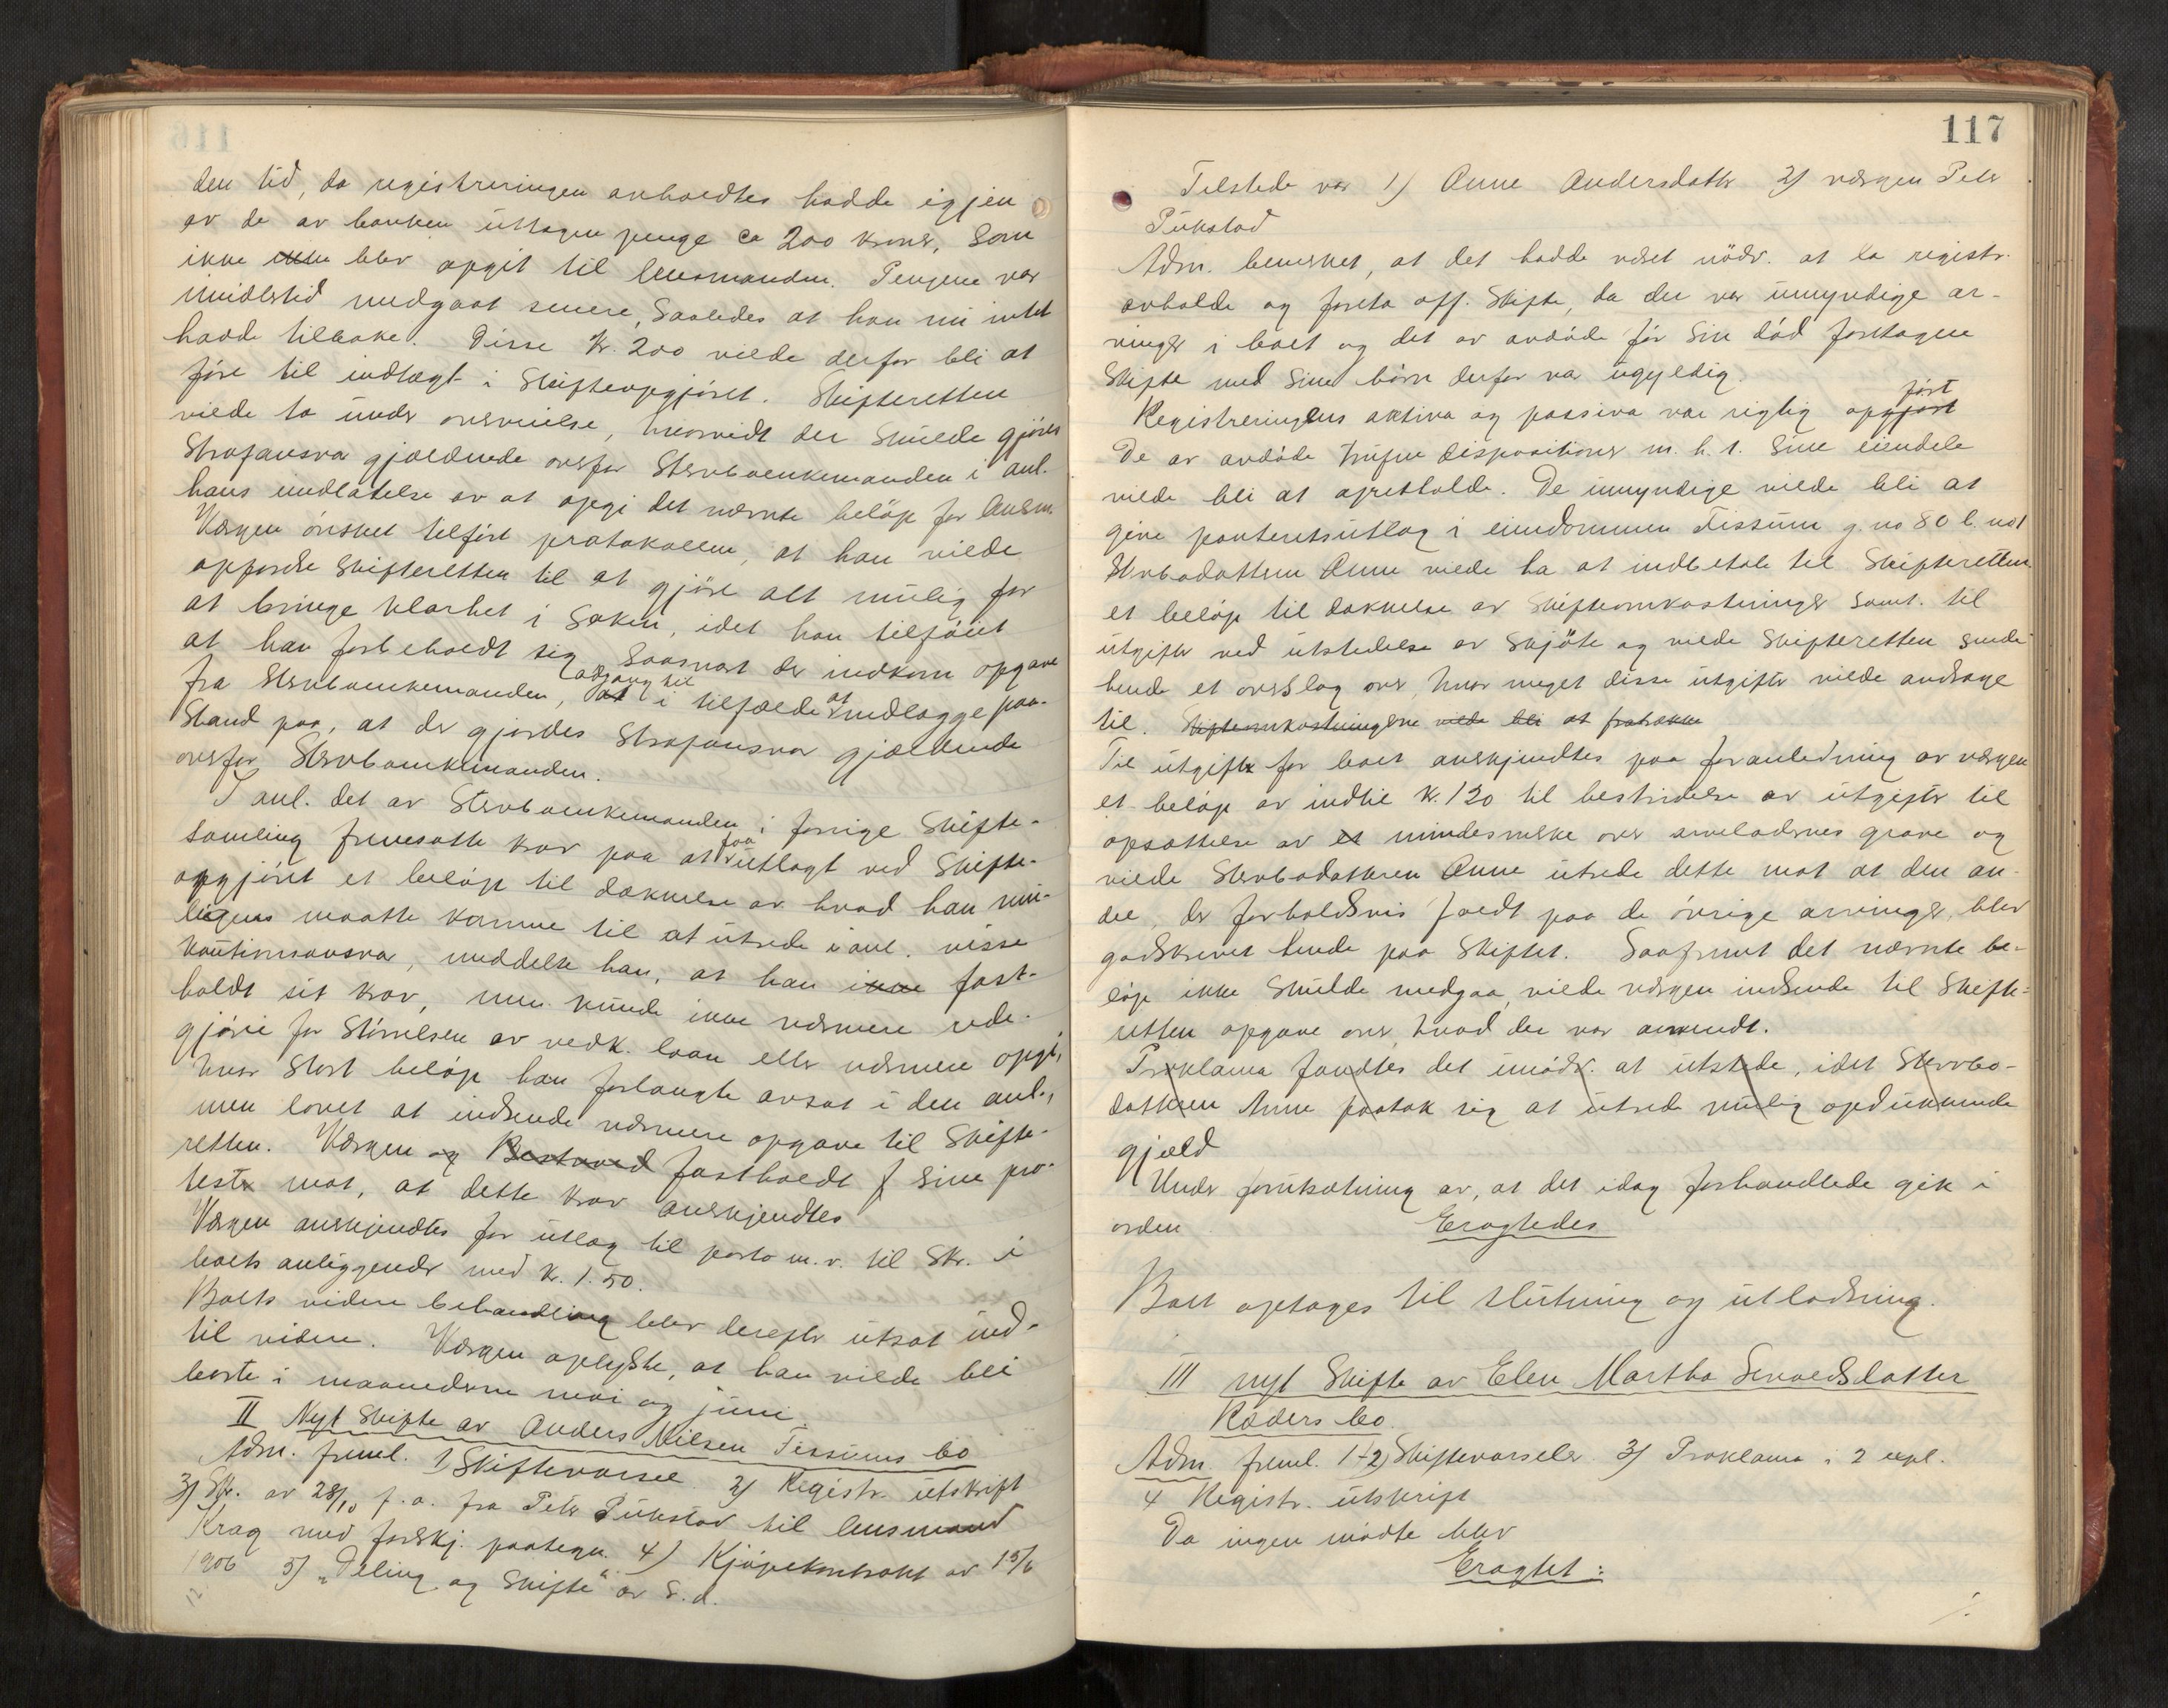 den tid, da registreringen avholdtes hadde igjen
av de av banken uttagne penge ca 200 kroner, som
ikke ikke blev opgit til lensmanden. Pengene var
imidlertid medgaat senere, saaledes at han nu intet
hadde tilbake. Disse kr. 200 vilde derfor bli at
føre til indtægt i skifteopgjøret. Skifteretten
vilde ta under overveielse, hvorvidt der skulde gjøres
strafansvar gjældende overfor sterboenkemanden i anl.
hans undlatelse av at opgi det nævnte beløp for lensm.
Værgen ønsket tilført protokollen, at han vilde
opfordre skifteretten til at gjøre alt mulig for
at bringe klarhet i saken, idet han tilføiet
at han forbeholdt sig saasnart der indkom opgave
fra sterboenkemanden, at adgang til i tilfælde at nedlægge paa-
stand paa, at der gjordes strafansvar gjældende
overfor sterboenkemanden.
I anl. det av sterboenkemanden i forrige skifte-
samling fremsatte krav paa at faa utlagt ved skifte-
opgjøret et beløp til dækkelse av hvad han mu-
ligens maatte komme til at utrede i anl. visse
kautionsansvar, meddelte han, at han ikke fast-
holdt sit krav, men kunde ikke nærmere rede-
gjøre for størrelsen av vedk. laan eller nærmere opgi,
hvor stort beløp han forlangte avsat i den anl.,
men lovet at indsende nærmere opgave til skifte-
retten. Værgen og fastholdt sine pro-
tester mot, at dette krav anerkjendtes
Værgen anerkjendtes for utlæg til porto m.v. til Skr. i
boets anliggender med kr. 1.50.
Boets videre behandling blev derefter utsat ind-
til videre. Værgen oplyste, at han vilde bli
borte i maanederne mai og juni.
II Nyt skifte av Anders Nilsen Tissums bo
Adm. freml. 1) Skiftevarsel 2) Registr. utskrift
3) Skr. av 28/10 f.a. fra Peter Pukstad til lensmand
Krag med forskj. paategn. 4) Kjøpekontrakt av 15/6
1906 5) "Deling og Skifte" av s.d.
117
Tilstede var 1) Anne Andersdatter 2) værgen Peter
Pukstad
Adm. bemerket, at det hadde været nødv. at la registr.
avholde og foreta off. skifte, da der var umyndige ar-
vinger i boet og det av avdøde før sin død foretagne
skifte med sine børn derfor var ugyldig.
Registreringens aktiva og passiva var rigtig opgjørt ført
De av avdøde trufne dispositioner m.h.t. sine eiendele
vilde bli at opretholde. De umyndige vilde bli at
give panteretsutlæg i eiendommen Tissum g.no 80 b.no 1
Sterbodatteren Anne vilde ha at indbetale til skifteretten
et beløp til dækkelse av skifteomkostninger samt til
utgifter ved utstedelse av skjøte og vilde skifteretten sende
hende et overslag over, hvor meget disse utgifter vilde andrage
til. Skifteomkostningerne vilde bli at fratrække
Til utgifter for boet anerkjendtes paa foranledning av værgen
et beløp av indtil kr. 120 til bestridelse av utgifter til
opsættelse av et mindesmerke over arveladernes grave og
vilde sterbodatteren Anne utrede dette mot at den an-
del, der forholdsvis faldt paa de øvrige arvinger, blev
godskrevet hende paa skiftet. Saafremt det nævnte be-
løp ikke skulde medgaa, vilde værgen indsende til skifte-
retten opgave over, hvad der var anvendt.
Proklama fandtes det unødv. at utstede, idet sterbo-
datteren Anne paatok sig at utrede mulig opdukkende
gjæld
Under forutsætning av, at det idag forhandlede gik i
orden Eragtedes
Boet optages til slutning og utlodning.
III nyt skifte av Elen Martha Sevaldsdatter
Ræders bo.
Adm. freml. 1-2) Skiftevarseler 3) Proklama i 2 expl.
4 Registr. utskrift
Da ingen møtte blev
Eragtet:
./.